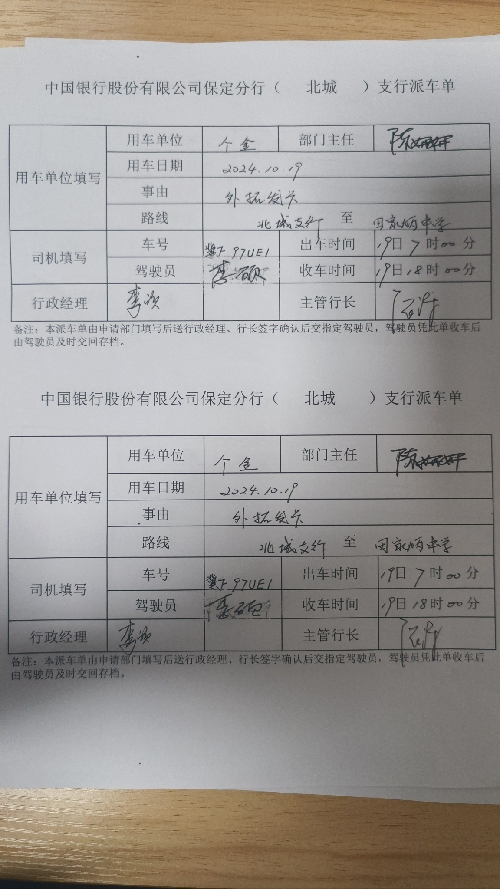 中国银行股份有限公司保定分行( 北城 )支行派车单
用车单位填写 用车单位 个金 部门主任
用车日期 2024.10.19
事由 外拓发卡
路线 北城支行 至
司机填写 车号 97UE1 出车时间 19日7时00分
驾驶员 收车时间 19日18时00分
行政经理 主管行长
备注:本派车单由申请部门填写后送行政经理、行长签字确认后交指定驾驶员,驾驶员凭此单收车后
由驾驶员及时交回存档。
中国银行股份有限公司保定分行( 北城 )支行派车单
用车单位填写 用车单位 个金 部门主任
用车日期 2024.10.19
事由 外拓发卡
路线 北城支行 至
司机填写 车号 97UE1 出车时间 19日7时00分
驾驶员 收车时间 19日18时00分
行政经理 主管行长
备注:本派车单由申请部门填写后送行政经理、行长签字确认后交指定驾驶员,驾驶员凭此单收车后
由驾驶员及时交回存档。